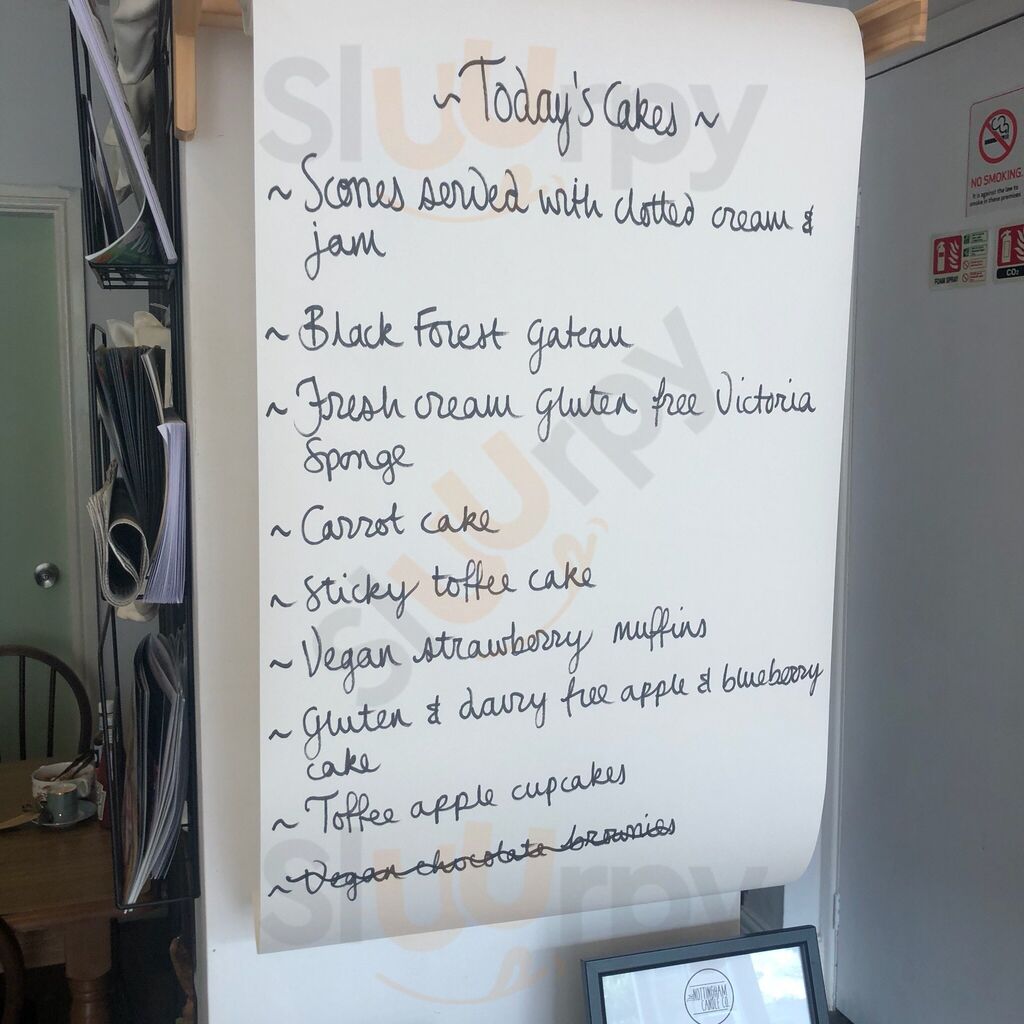 ~ Today's Cakes ~
~ Scones served with clotted cream &
jam
~ Black Forest gateau
~ Fresh cream gluten free Victoria
Sponge
~ Carrot cake
~ Sticky toffee cake
~ Vegan strawberry muffins
~ Gluten & dairy free apple & blueberry
cake
~ Toffee apple cupcakes
~ Vegan chocolate brownies
NO SMOKING
It is against the law to
smoke in these premises
FOAM SPRAY
CO2
NOTTINGHAM
CANDLE CO.
Sluurpy
Sluurpy
Sluurpy